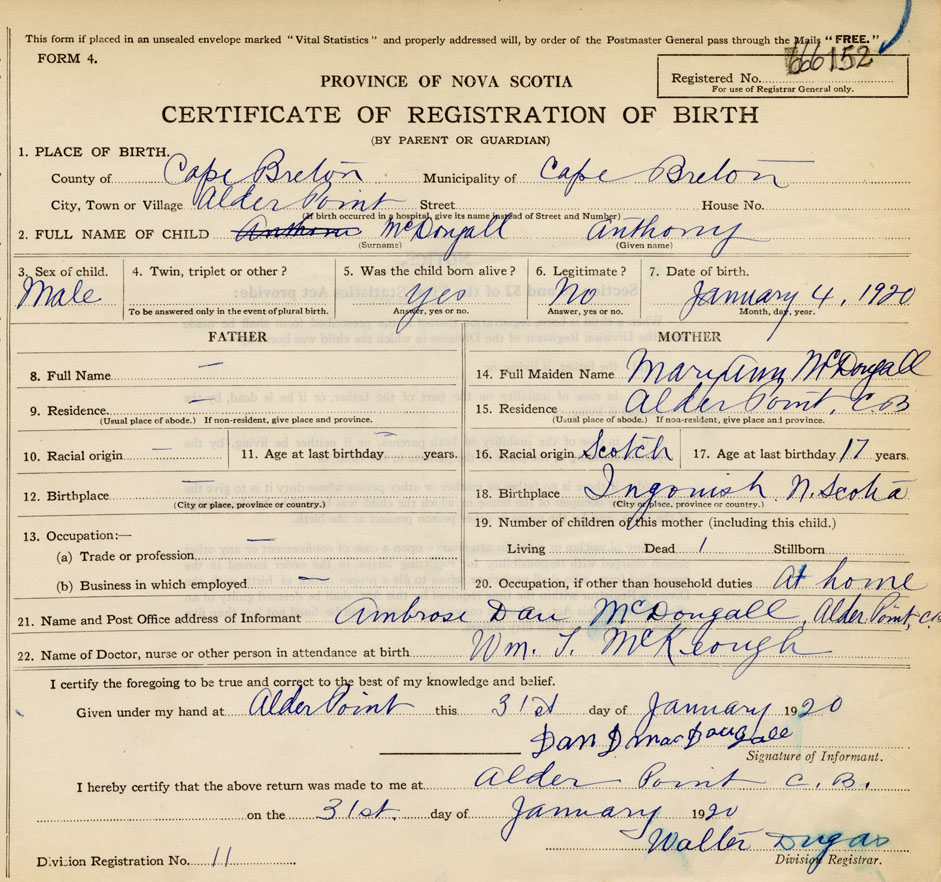 This form if placed in an unsealed envelope marked "Vital Statistics" and properly addressed will, by order of the Postmaster General pass through the Mails "FREE."
FORM 4.
66152
PROVINCE OF NOVA SCOTIA
Registered No.
For use of Registrar General only.
CERTIFICATE OF REGISTRATION OF BIRTH
(BY PARENT OR GUARDIAN)
1. PLACE OF BIRTH.
County of Cape Breton Municipality of Cape Breton
City, Town or Village Alder Point Street House No.
(If birth occurred in a hospital, give its name instead of Street and Number)
2. FULL NAME OF CHILD McDougall Anthony
(Surname) (Given name)
3. Sex of child. 4. Twin, triplet or other? 5. Was the child born alive? 6. Legitimate? 7. Date of birth.
Male yes No January 4, 1920
To be answered only in the event of plural birth. Answer, yes or no. Answer, yes or no. Month, day, year.
FATHER MOTHER
8. Full Name — 14. Full Maiden Name Maryann McDougall
9. Residence — 15. Residence Alder Point, C.B
(Usual place of abode.) If non-resident, give place and province. (Usual place of abode.) If non-resident, give place and province.
10. Racial origin — 11. Age at last birthday — years. 16. Racial origin Scotch 17. Age at last birthday 17 years.
12. Birthplace — 18. Birthplace Ingonish N. Scotia
(City or place, province or country.) (City or place, province or country.)
19. Number of children of this mother (including this child.)
13. Occupation:— —
Living Dead 1 Stillborn
(a) Trade or profession
(b) Business in which employed — 20. Occupation, if other than household duties At home
21. Name and Post Office address of Informant Ambrose Dan McDougall, Alder Point, C.B
22. Name of Doctor, nurse or other person in attendance at birth Wm. T. McKeough
I certify the foregoing to be true and correct to the best of my knowledge and belief.
Given under my hand at Alder Point this 31st day of January 1920
Dan D MacDougalle
Signature of Informant.
I hereby certify that the above return was made to me at Alder Point C.B.
on the 31st. day of January 1920
Walter Dugas
Division Registration No. 11 Division Registrar.